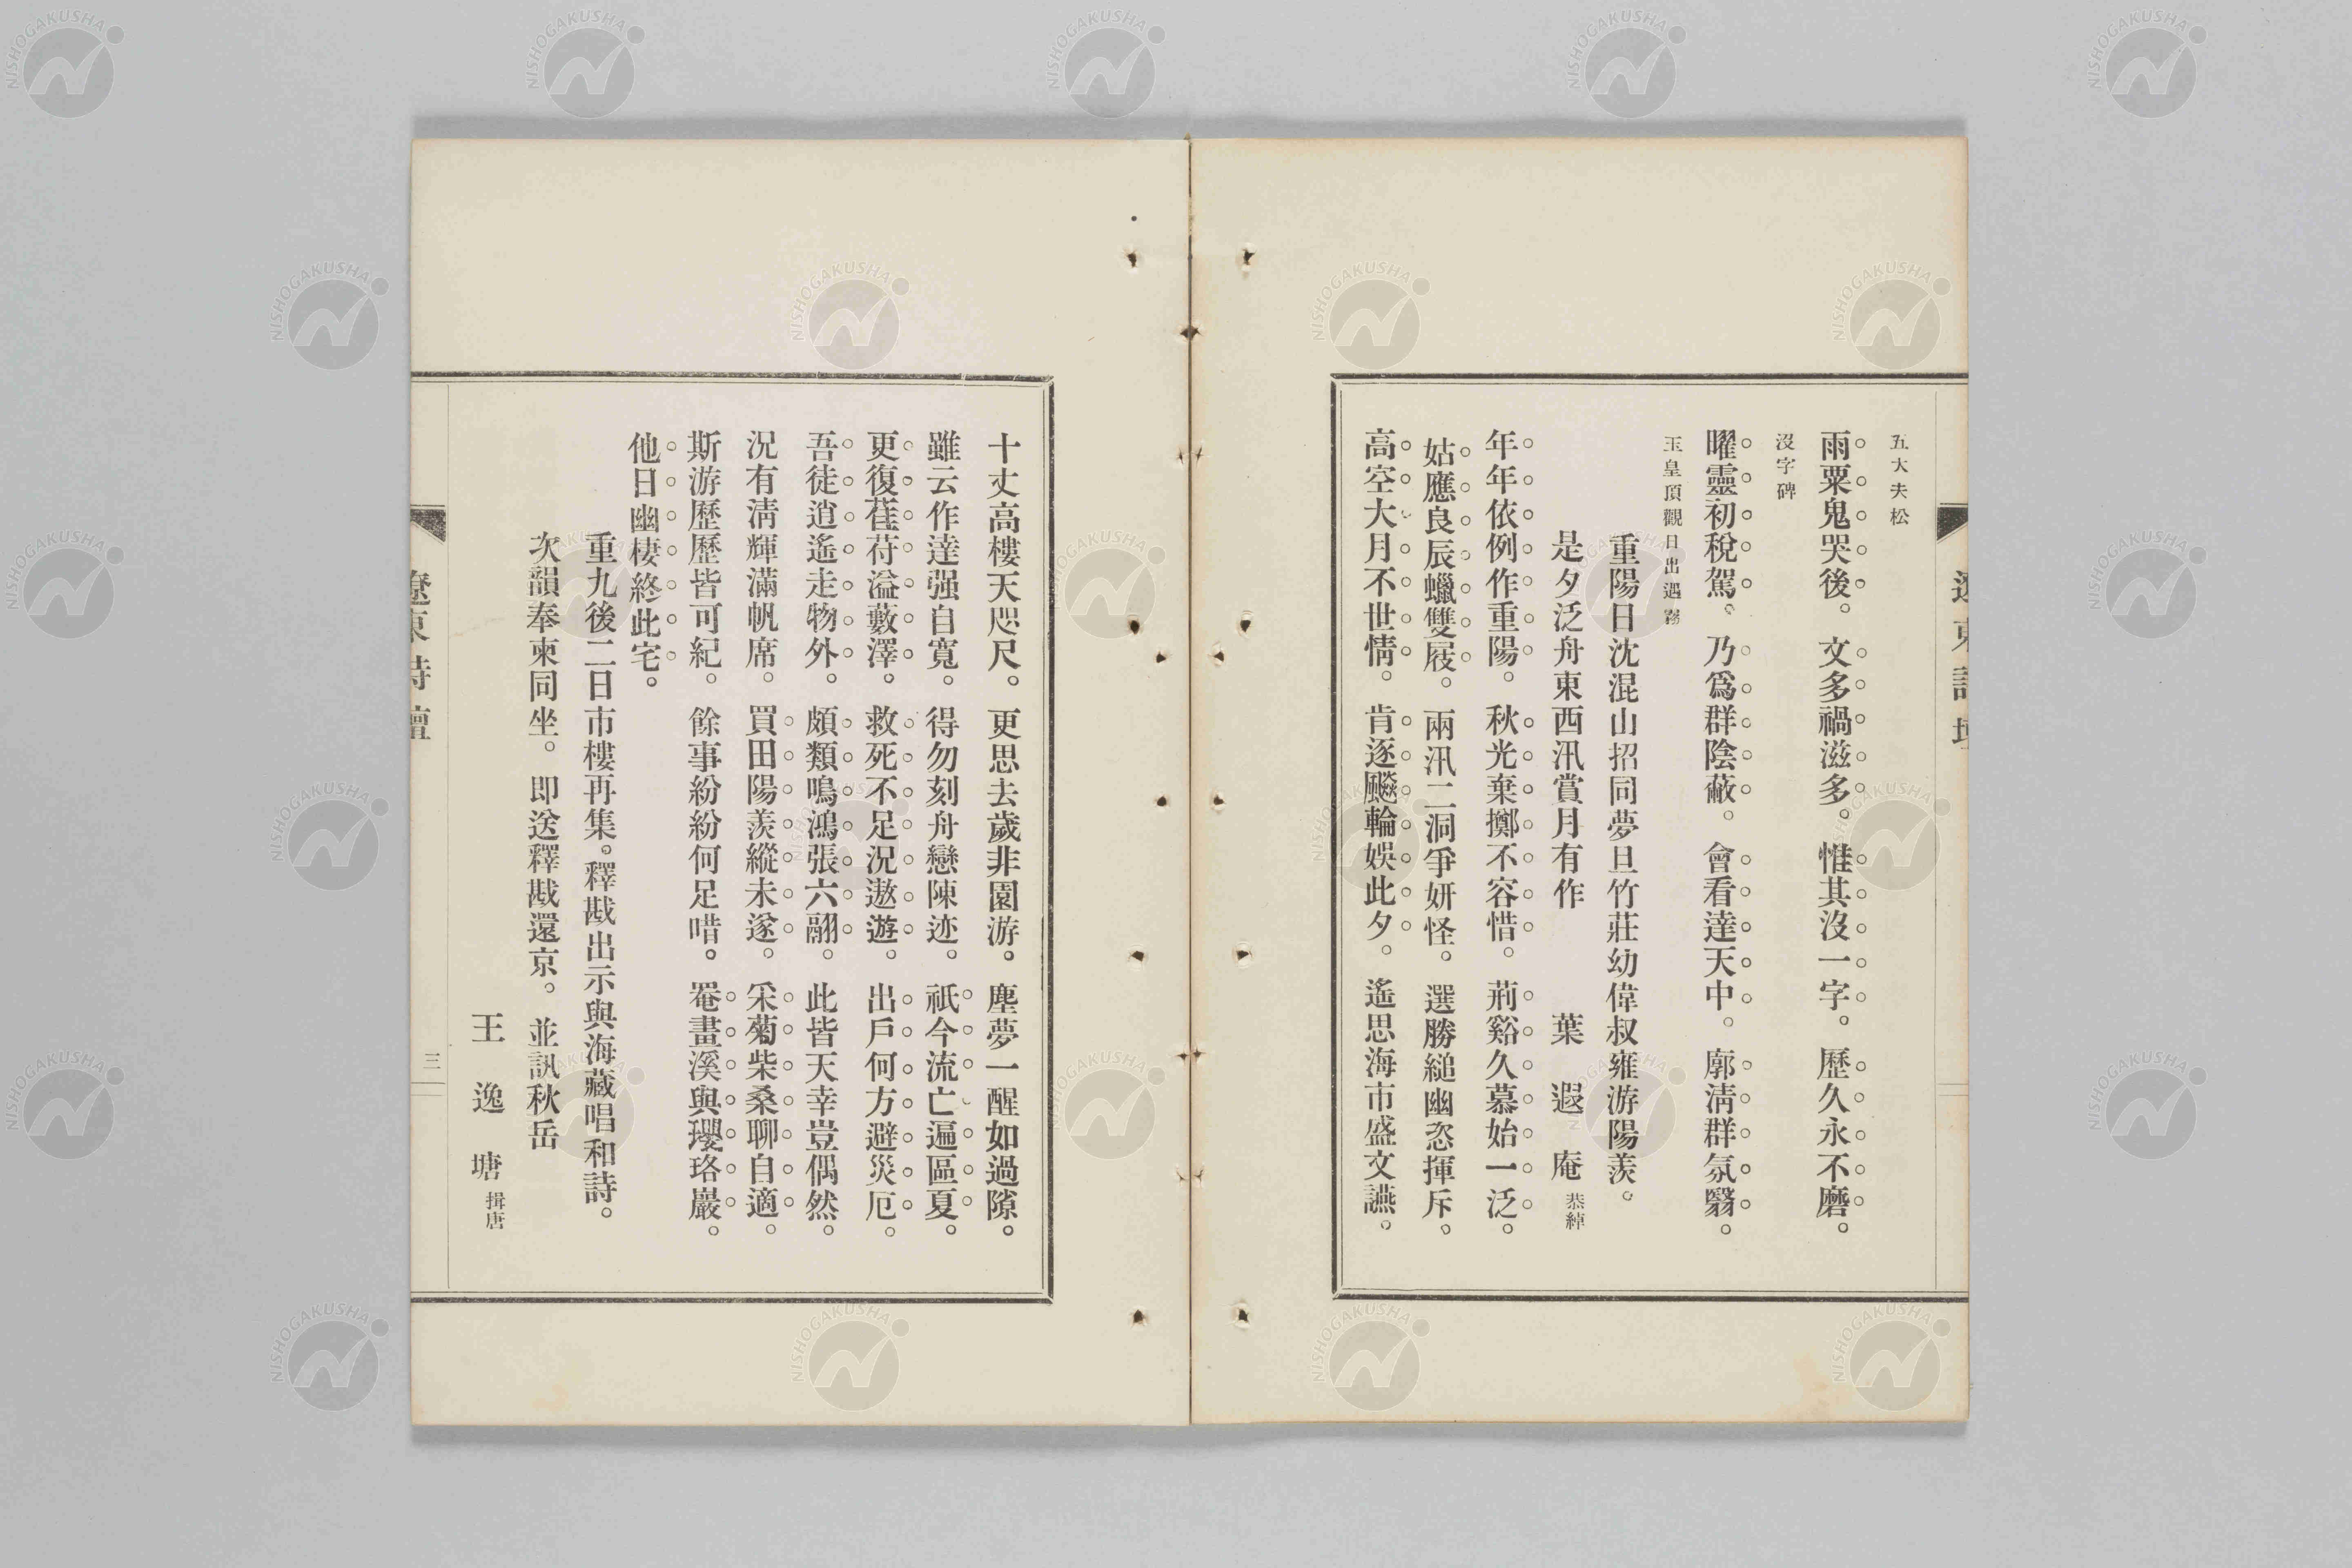 五大夫松
雨粟鬼哭後。文多禍滋多。惟其沒一字。歷久永不磨。
沒字碑
曜靈初稅駕。乃爲群陰蔽。會看達天中。廓淸群氛翳。
玉皇頂觀日出遇霧
重陽日沈混山招同夢旦竹莊幼偉叔雍游陽羨。
是夕泛舟東西汛賞月有作 葉遐庵 恭綽
年年依例作重陽。秋光棄擲不容惜。荊谿久慕始一泛。
姑應良辰蠟雙屐。兩汛二洞爭妍怪。選勝縋幽恣揮斥。
高空大月不世情。肯逐飈輪娛此夕。遙思海市盛文讌。
遼東詩壇
十丈高樓天咫尺。更思去歲非園游。塵夢一醒如過隙。
雖云作達强自寬。得勿刻舟戀陳迹。祇今流亡遍區夏。
更復萑苻溢藪澤。救死不足況遨遊。出戶何方避災厄。
吾徒逍遙走物外。頗類鳴鴻張六翮。此皆天幸豈偶然。
況有淸輝滿帆席。買田陽羨縱未遂。采菊柴桑聊自適。
斯游歷歷皆可紀。餘事紛紛何足唶。罨畫溪與瓔珞巖。
他日幽棲終此宅。
重九後二日市樓再集。釋戡出示與海藏唱和詩。
次韻奉柬同坐。即送釋戡還京。並訊秋岳
王逸塘 揖唐
遼東詩壇
三
NISHOGAKUSHA